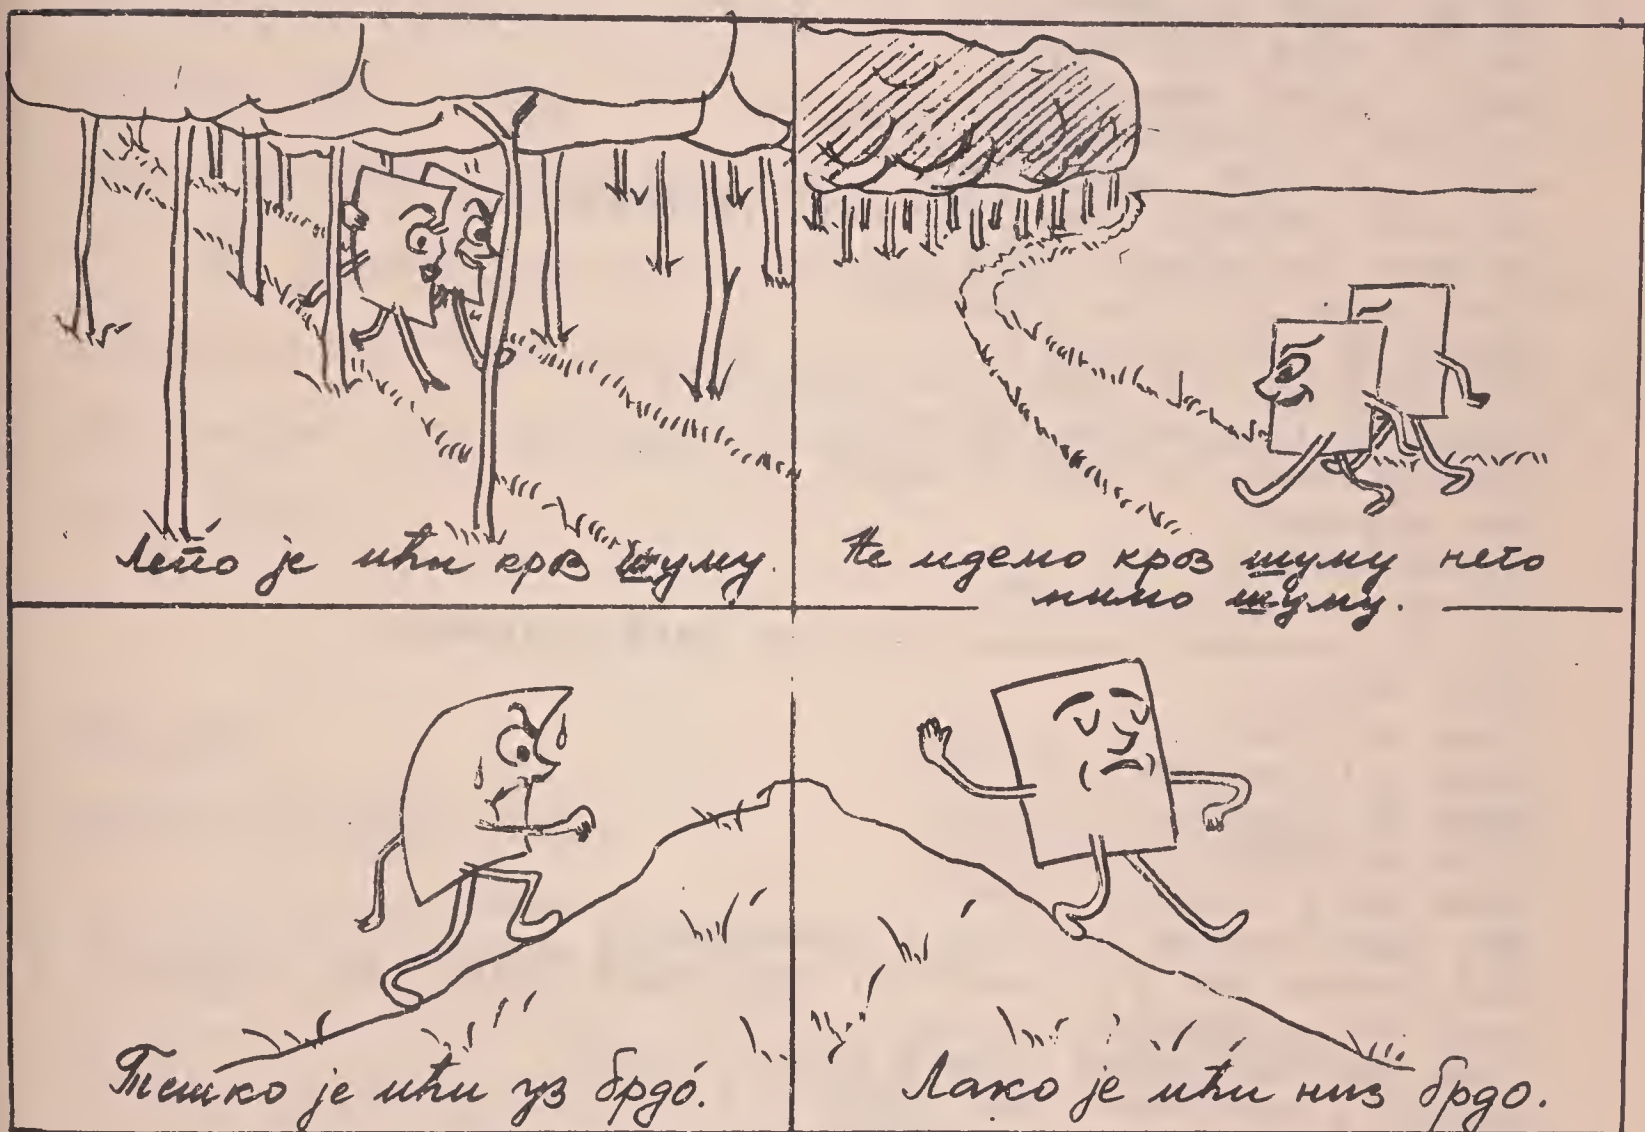 Лепо је ићи кроз шуму.
Не идемо кроз шуму него
мимо шуму.
Тешко је ићи уз брдо.
Лако је ићи низ брдо.